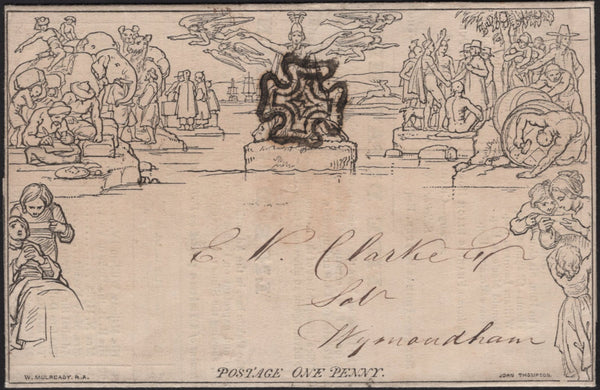 E. P. Clarke Esq
Solr
Wymondham
POSTAGE ONE PENNY.
W. MULREADY. R.A.
JOHN THOMPSON.